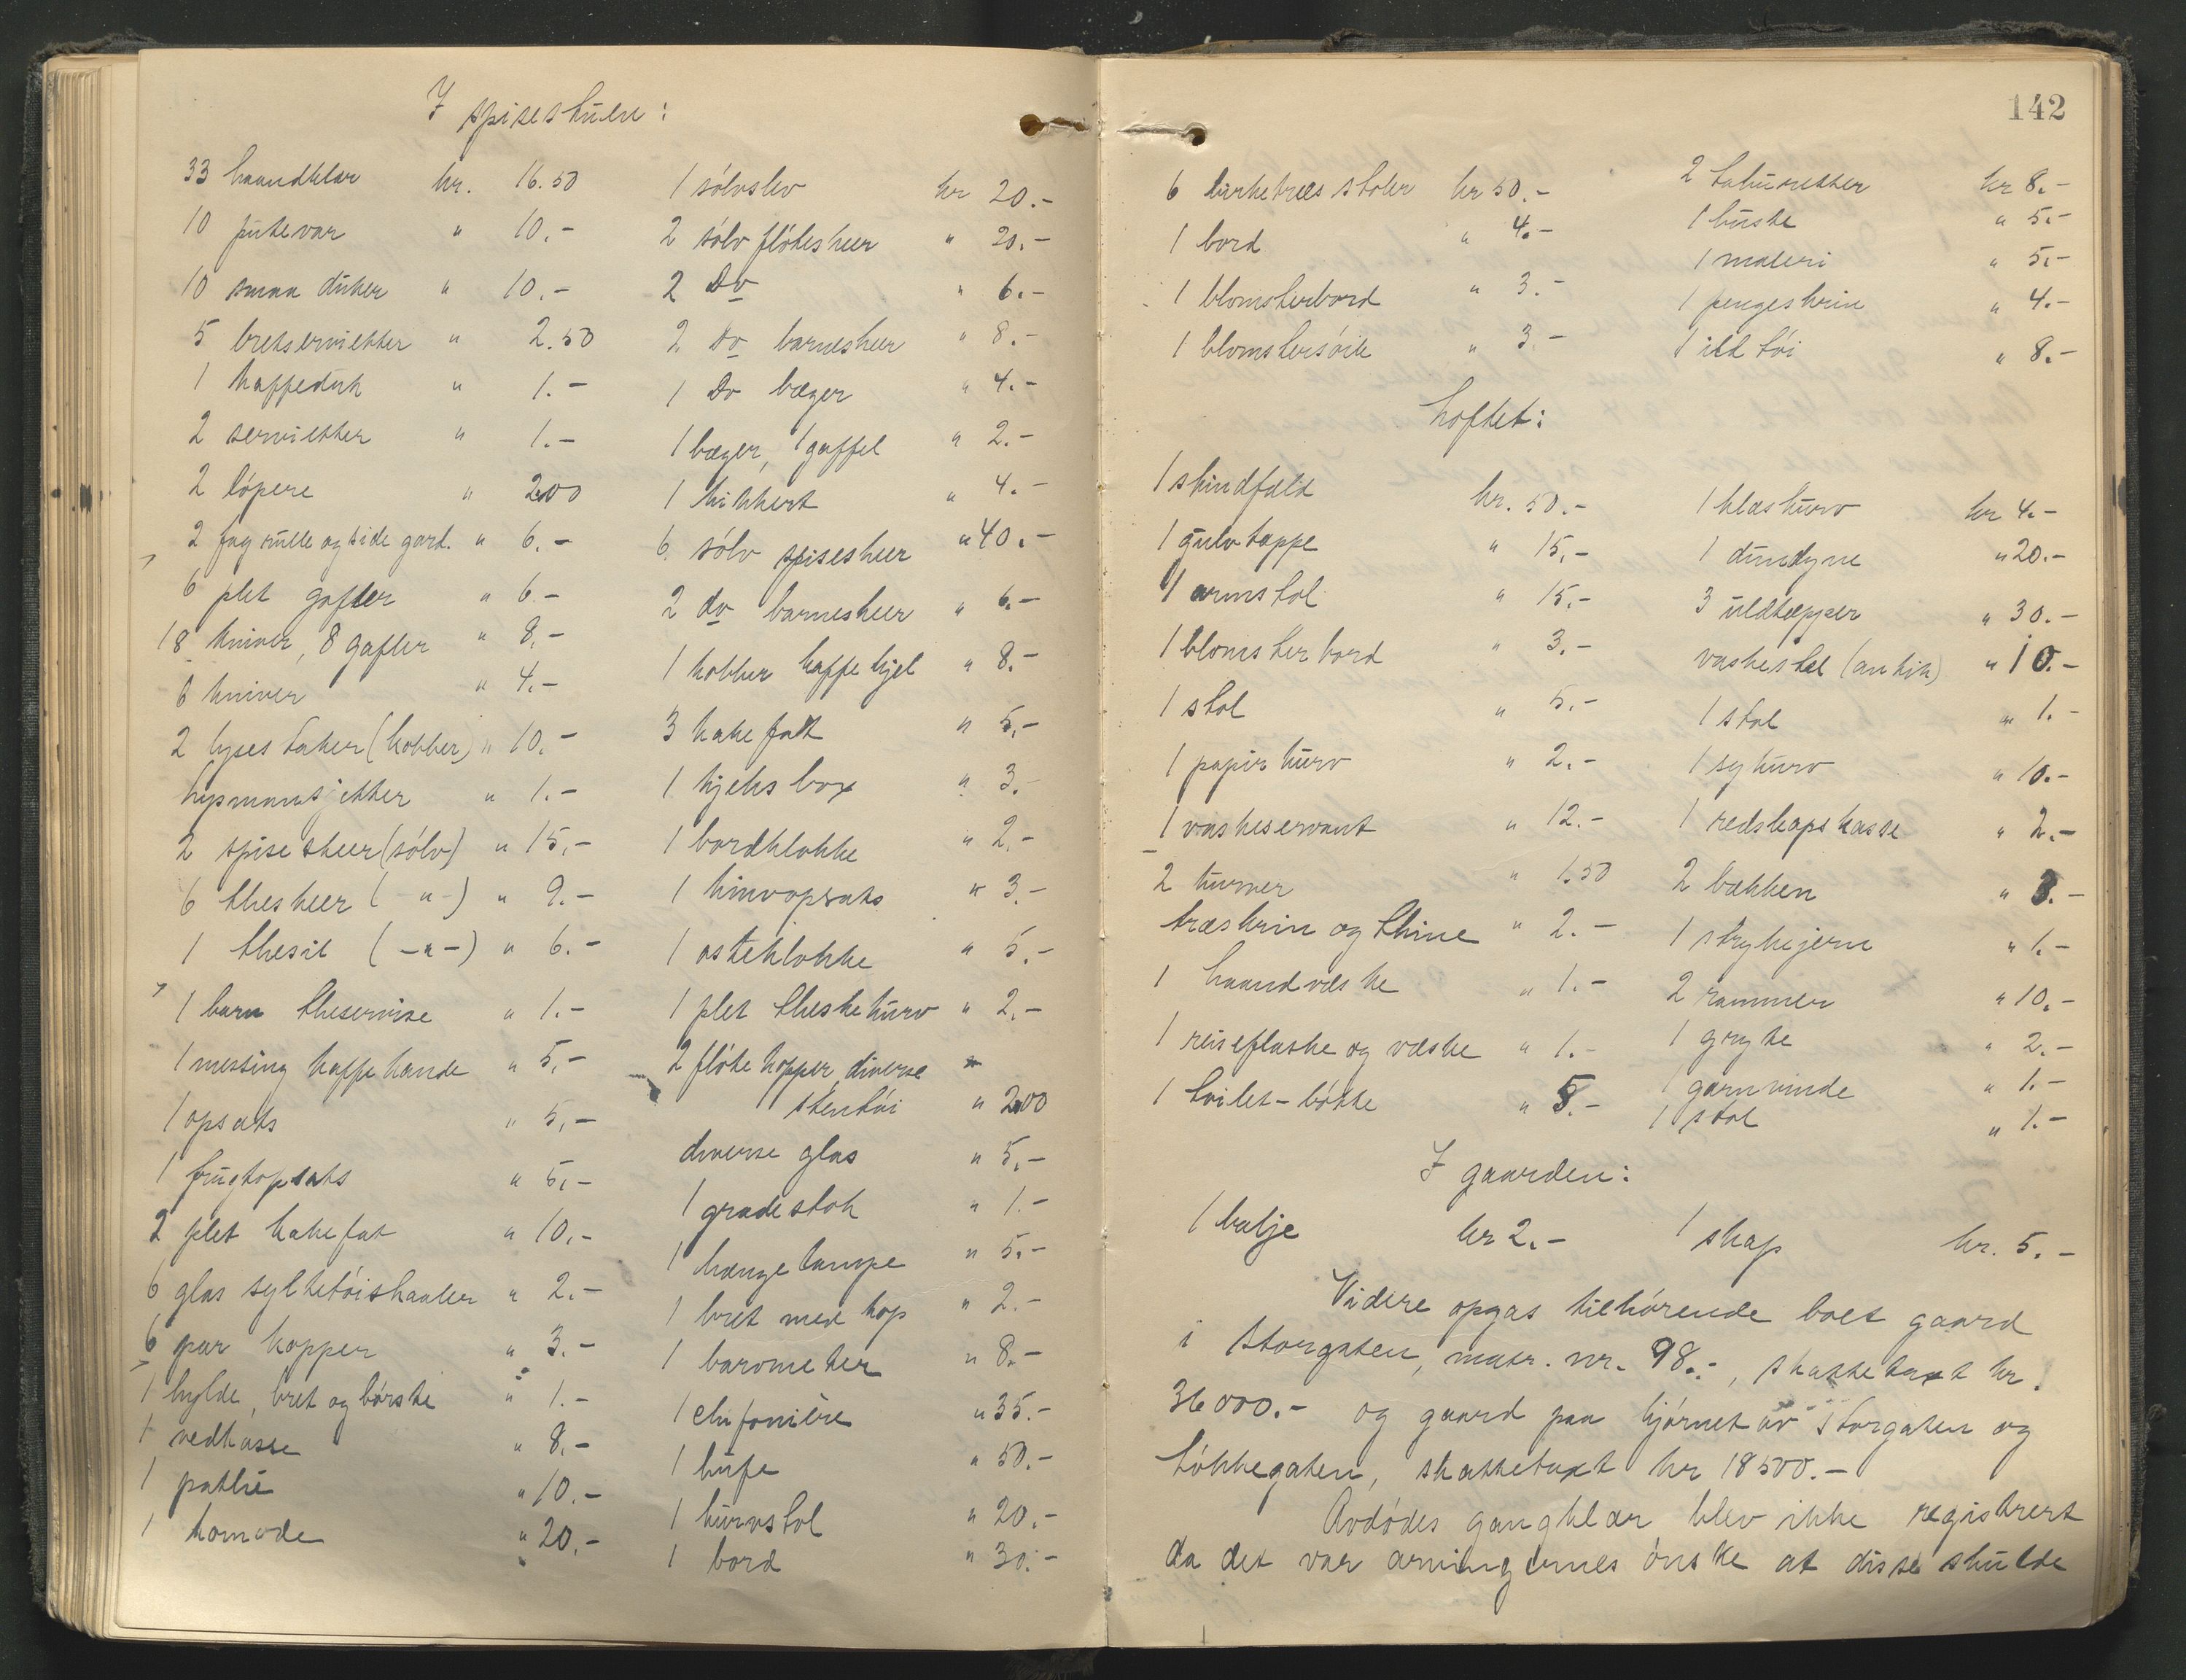 I spisestuen:
33 haandklær kr. 16.50
10 putevar " 10.-
10 smaa duker " 10.-
5 bretservietter " 2.50
1 kaffeduk " 1.-
2 servietter " 1.-
2 löpere " 2.00
2 fag rulle og side gard. " 6.-
6 plet gafler " 6.-
18 kniver, 8 gafler " 8.-
6 kniver " 4.-
2 lysestaker (kobber) " 10.-
lysmansjetter " 1.-
2 spiseskeer (sölv) " 15.-
6 theskeer ( -"-) " 9.-
1 thesil ( -"-) " 6.-
1 barn theservise " 1.-
1 messing kaffekande " 5.-
1 opsats " 5.-
1 frugtopsats " 5.-
2 plet kakefat " 10.-
6 glas syltetöiskaaler " 2.-
6 par kopper " 3.-
1 hylde, bret og börste " 1.-
1 vedkasse " 8.-
1 " 10.-
1 komode " 20.-
1 sölvslev kr 20.-
2 sölv flöteskeer " 20.-
2 Do " 6.-
2 Do barneskeer " 8.-
1 Do bæger " 4.-
1 bæger, 1 gaffel " 2.-
1 kikkert " 4.-
6 sölv spiseskeer " 40.-
2 do barneskeer " 6.-
1 kobber kaffekjel " 8.-
3 kakefat " 5.-
1 kjeksbox " 3.-
1 bordklokke " 2.-
1 opsats " 3.-
1 osteklokke " 5.-
1 plet theskekurv " 2.-
2 flötekopper, diverse
stentöi " 2.00
diverse glas " 5.-
1 gradestok " 1.-
1 hængelampe " 5.-
1 bret med kop " 2.-
1 barometer " 8.-
1 chifoniere " 35.-
1 bufe " 50.-
1 kurvstol " 20.-
1 bord " 30.-
142
6 birketræs stoler kr 50.-
1 bord " 4.-
1 blomsterbord " 3.-
1 blomstersöile " 3.-
2 taburetter kr 8.-
1 buste " 5.-
1 maleri " 5.-
1 pengeskrin " 4.-
1 ildtöi " 8.-
Loftet:
1 skindfæld kr. 50.-
1 gulvtæppe " 15.-
1 armstol " 15.-
1 blomsterbord " 3.-
1 stol " 5.-
1 papirkurv " 2.-
1 vaskeservant " 12.-
2 kurver " 1.50
træskrin og thine " 2.-
1 haandvæske " 1.-
1 reiseflaske og væske " 1.-
1 toilet-bötte " 5.-
1 klæskurv kr 4.-
1 dundyne " 20.-
3 uldtæpper " 30.-
vaskestel (antik) " 10.-
1 stol " 1.-
1 sykurv " 10.-
1 redskapskasse " 2.-
2 bækken " 3.-
1 strykejern " 1.-
2 rammer " 10.-
1 gryte " 2.-
1 garnvinde " 1.-
1 stol " 1.-
I gaarden:
1 balje kr 2.- 1 skap kr. 5.-
Videre opgas tilhörende boet gaard
i Storgaten, matr. nr. 98.-, skattetaxt kr.
36000.- og gaard paa hjörnet av Storgaten og
Lökkegaten, skattetaxt kr 18500.-
Avdödes gangklær blev ikke registrert
da det var arvingernes önske at disse skulde